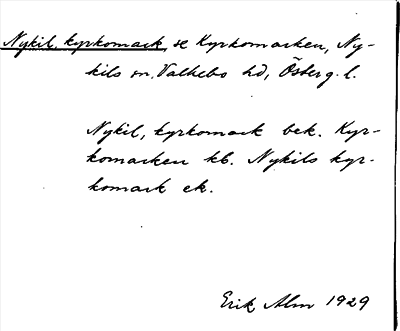 Nykil, kyrkomark, se Kyrkomarken, Ny-
kils sn, Valkebo hd, Österg. l.
Nykil, kyrkomark bek. Kyr-
komarken kb. Nykils kyr-
komark ek.
Erik Alm 1929